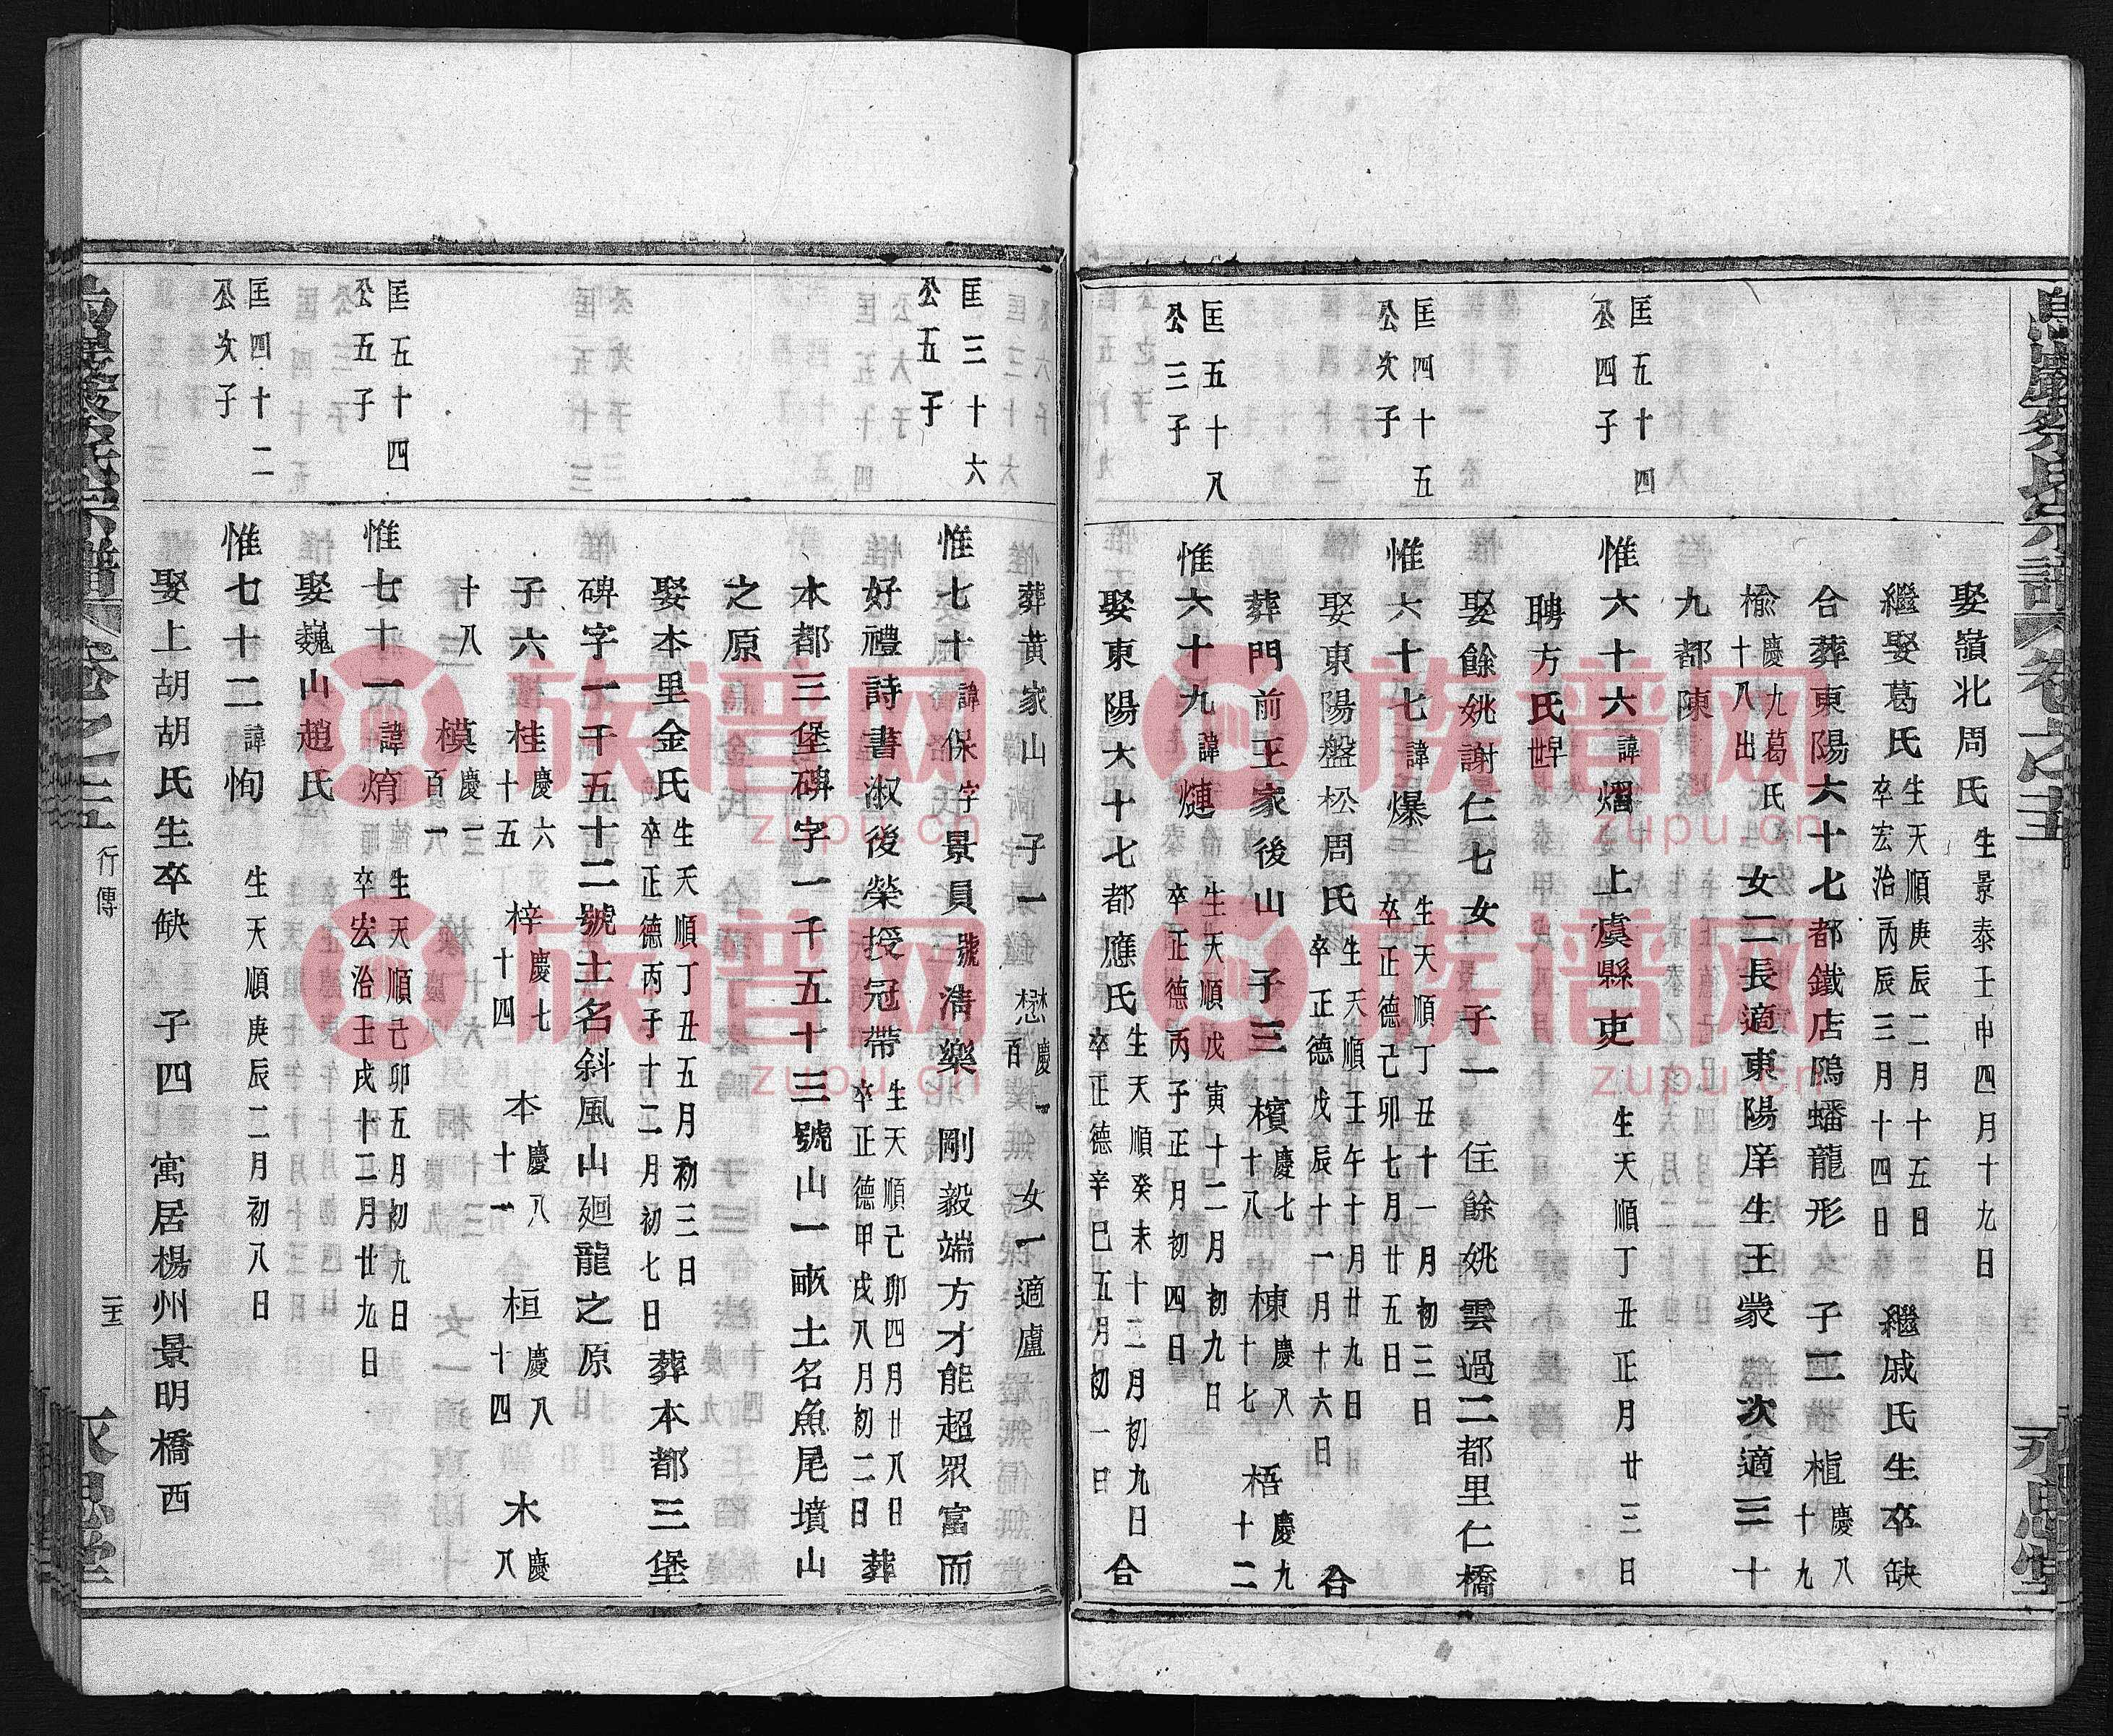 娶嶺北周氏 生景泰壬申四月十九日
繼娶葛氏 生天順庚辰二月十五日 卒宏治丙辰三月十四日 繼戚氏生卒缺
合葬東陽六十七都鐵店隖蟠龍形 子二 植 慶八十九
楡 慶九十八 葛氏出 女二長適東陽庠生王蒙 次適三十
九都陳
匡五十四公四子
惟六十六 諱熠 上虞縣吏 生天順丁丑正月廿三日
聘方氏
匡四十五公次子
娶餘姚謝仁七女 子一 住餘姚雲過二都里仁橋
惟六十七 諱爆 生天順丁丑十一月初三日 卒正德己卯七月廿五日
娶東陽盤松周氏 生天順壬午十月廿九日 卒正德戊辰十一月十六日 合
葬門前王家後山 子三 檳 慶七十八 棟 慶八十七 梧 慶九十二
匡五十八公三子
惟六十九 諱熥 生天順戊寅十二月初九日 卒正德丙子正月初四日
娶東陽六十七都應氏 生天順癸未十二月初九日 卒正德辛巳五月初一日 合
葬黄家山 子一 懋 慶一百 女一適盧
匡三十六公五子
惟七十 諱保字景員號清樂 剛毅端方才能超眾富而
好禮詩書淑後榮授冠帶 生天順己卯四月廿八日 卒正德甲戌八月初二日 葬
本都三堡碑字一千五十三號山一畝土名魚尾墳山
之原
娶本里金氏 生天順丁丑五月初三日 卒正德丙子十二月初七日 葬本都三堡
碑字一千五十二號土名斜風山廻龍之原
子六 桂 慶六十五 梓 慶七十四 本 慶八十一 桓 慶八十四 木 慶八
十八 模 慶一百一
匡五十四公五子
惟七十一 諱焴 生天順己卯五月初九日 卒宏治壬戌十二月廿九日
娶巍山趙氏
匡四十二公次子
惟七十二 諱恂 生天順庚辰二月初八日
娶上胡胡氏生卒缺 子四 寓居楊州景明橋西
卷之五
行傳
永思堂
族谱网
zupu.cn
族谱网
zupu.cn
族谱网
zupu.cn
族谱网
zupu.cn